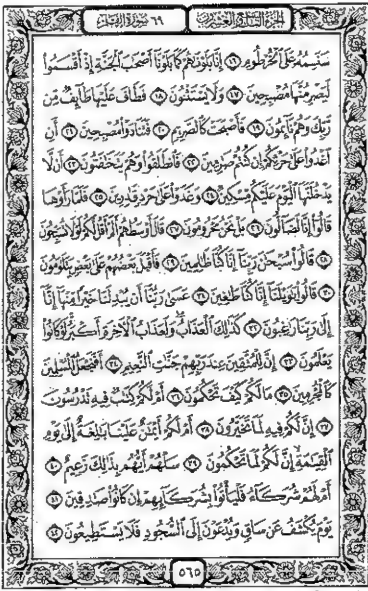 الجزء التاسع والعشرون
سَنَسِمُهُ عَلَى ٱلْخُرْطُومِ ١٦ إِنَّا بَلَوْنَٰهُمْ كَمَا بَلَوْنَآ أَصْحَٰبَ ٱلْجَنَّةِ إِذْ أَقْسَمُوا۟
لَيَصْرِمُنَّهَا مُصْبِحِينَ ١٧ وَلَا يَسْتَثْنُونَ ١٨ فَطَافَ عَلَيْهَا طَآئِفٌ مِّن
رَّبِّكَ وَهُمْ نَآئِمُونَ ١٩ فَأَصْبَحَتْ كَٱلصَّرِيمِ ٢٠ فَتَنَادَوْا۟ مُصْبِحِينَ ٢١ أَنِ
ٱغْدُوا۟ عَلَىٰ حَرْثِكُمْ إِن كُنتُمْ صَٰرِمِينَ ٢٢ فَٱنطَلَقُوا۟ وَهُمْ يَتَخَٰفَتُونَ ٢٣ أَن لَّا
يَدْخُلَنَّهَا ٱلْيَوْمَ عَلَيْكُم مِّسْكِينٌ ٢٤ وَغَدَوْا۟ عَلَىٰ حَرْدٍ قَٰدِرِينَ ٢٥ فَلَمَّا رَأَوْهَا
قَالُوٓا۟ إِنَّا لَضَآلُّونَ ٢٦ بَلْ نَحْنُ مَحْرُومُونَ ٢٧ قَالَ أَوْسَطُهُمْ أَلَمْ أَقُل لَّكُمْ لَوْلَا تُسَبِّحُونَ
٢٨ قَالُوا۟ سُبْحَٰنَ رَبِّنَآ إِنَّا كُنَّا ظَٰلِمِينَ ٢٩ فَأَقْبَلَ بَعْضُهُمْ عَلَىٰ بَعْضٍ يَتَلَٰوَمُونَ
٣٠ قَالُوا۟ يَٰوَيْلَنَآ إِنَّا كُنَّا طَٰغِينَ ٣١ عَسَىٰ رَبُّنَآ أَن يُبْدِلَنَا خَيْرًا مِّنْهَآ إِنَّآ
إِلَىٰ رَبِّنَا رَٰغِبُونَ ٣٢ كَذَٰلِكَ ٱلْعَذَابُ وَلَعَذَابُ ٱلْءَاخِرَةِ أَكْبَرُ لَوْ كَانُوا۟
يَعْلَمُونَ ٣٣ إِنَّ لِلْمُتَّقِينَ عِندَ رَبِّهِمْ جَنَّٰتِ ٱلنَّعِيمِ ٣٤ أَفَنَجْعَلُ ٱلْمُسْلِمِينَ
كَٱلْمُجْرِمِينَ ٣٥ مَا لَكُمْ كَيْفَ تَحْكُمُونَ ٣٦ أَمْ لَكُمْ كِتَٰبٌ فِيهِ تَدْرُسُونَ
٣٧ إِنَّ لَكُمْ فِيهِ لَمَا تَخَيَّرُونَ ٣٨ أَمْ لَكُمْ أَيْمَٰنٌ عَلَيْنَا بَٰلِغَةٌ إِلَىٰ يَوْمِ
ٱلْقِيَٰمَةِ إِنَّ لَكُمْ لَمَا تَحْكُمُونَ ٣٩ سَلْهُمْ أَيُّهُم بِذَٰلِكَ زَعِيمٌ ٤٠
أَمْ لَهُمْ شُرَكَآءُ فَلْيَأْتُوا۟ بِشُرَكَآئِهِمْ إِن كَانُوا۟ صَٰدِقِينَ ٤١
يَوْمَ يُكْشَفُ عَن سَاقٍ وَيُدْعَوْنَ إِلَى ٱلسُّجُودِ فَلَا يَسْتَطِيعُونَ ٤٢
٥٦٥